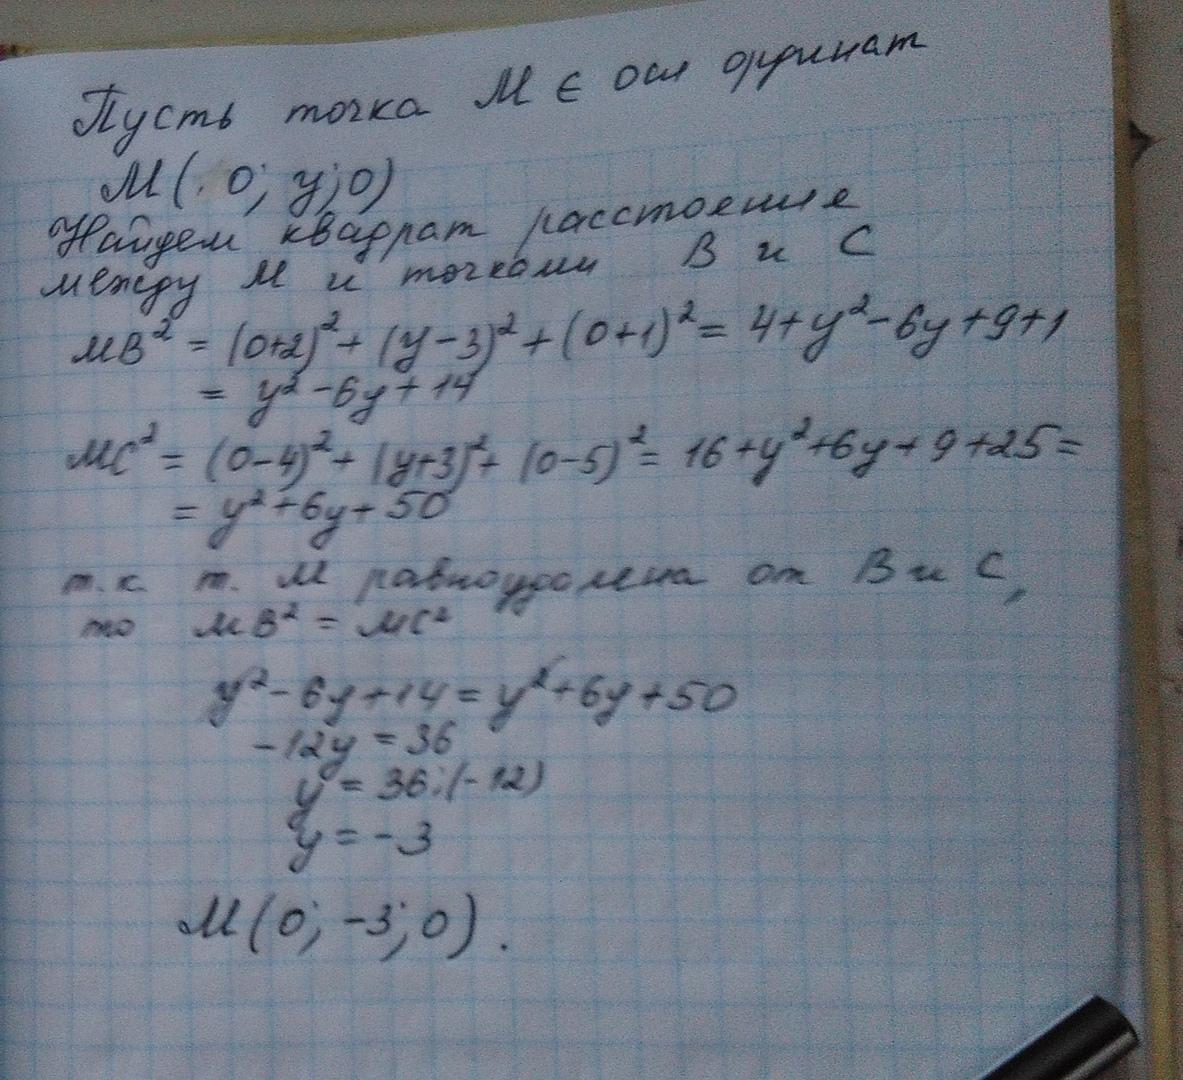 Пусть точка M ∈ оси ординат
M(0; y; 0)
Найдем квадрат расстояния
между M и точками B и C
MB² = (0+2)² + (y-3)² + (0+1)² = 4+y²-6y+9+1
= y²-6y+14
MC² = (0-4)² + (y+3)² + (0-5)² = 16+y²+6y+9+25=
= y²+6y+50
т.к. т. M равноудалена от B и C,
то MB² = MC²
y²-6y+14 = y²+6y+50
-12y = 36
y = 36:(-12)
y = -3
M(0; -3; 0).